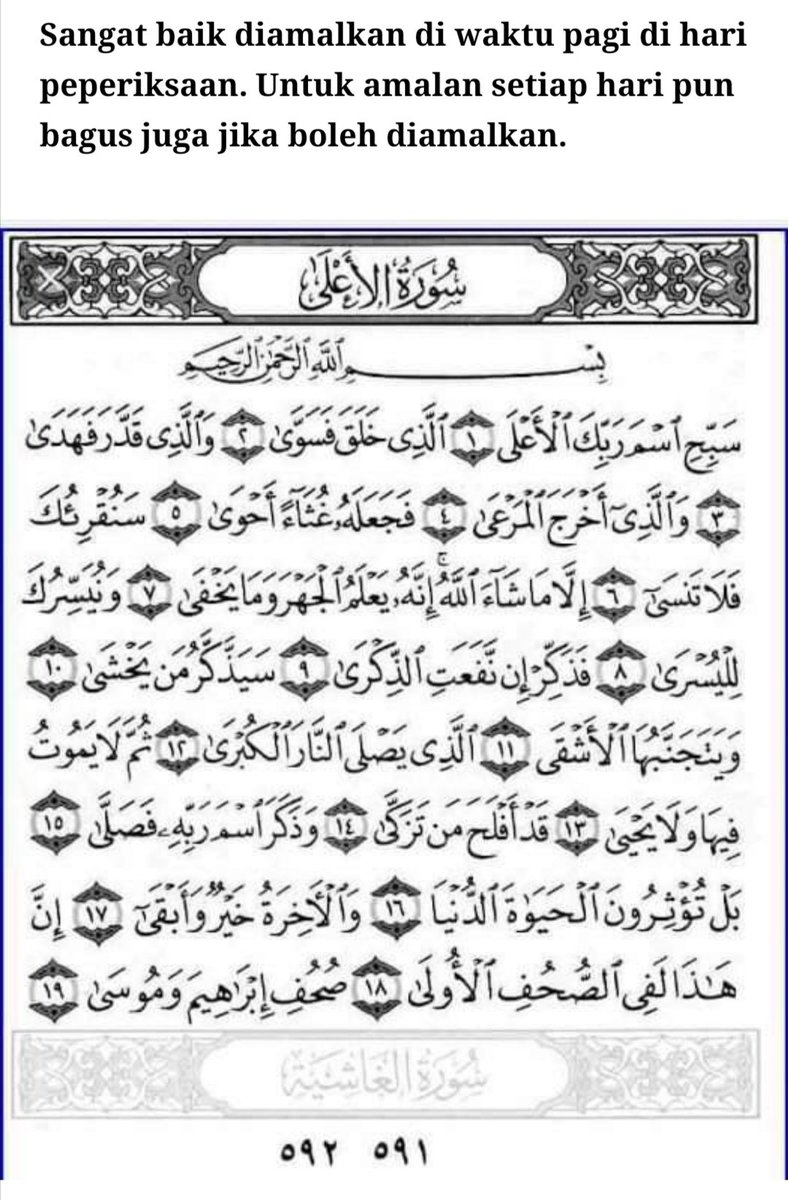 Sangat baik diamalkan di waktu pagi di hari
peperiksaan. Untuk amalan setiap hari pun
bagus juga jika boleh diamalkan.
سُورَةُ الأَعْلَىٰ
بِسْمِ ٱللَّهِ ٱلرَّحْمَٰنِ ٱلرَّحِيمِ
سَبِّحِ ٱسْمَ رَبِّكَ ٱلْأَعْلَى ١ ٱلَّذِى خَلَقَ فَسَوَّىٰ ٢ وَٱلَّذِى قَدَّرَ فَهَدَىٰ
٣ وَٱلَّذِىٓ أَخْرَجَ ٱلْمَرْعَىٰ ٤ فَجَعَلَهُۥ غُثَآءً أَحْوَىٰ ٥ سَنُقْرِئُكَ
فَلَا تَنسَىٰٓ ٦ إِلَّا مَا شَآءَ ٱللَّهُ ۚ إِنَّهُۥ يَعْلَمُ ٱلْجَهْرَ وَمَا يَخْفَىٰ ٧ وَنُيَسِّرُكَ
لِلْيُسْرَىٰ ٨ فَذَكِّرْ إِن نَّفَعَتِ ٱلذِّكْرَىٰ ٩ سَيَذَّكَّرُ مَن يَخْشَىٰ ١٠
وَيَتَجَنَّبُهَا ٱلْأَشْقَى ١١ ٱلَّذِى يَصْلَى ٱلنَّارَ ٱلْكُبْرَىٰ ١٢ ثُمَّ لَا يَمُوتُ
فِيهَا وَلَا يَحْيَىٰ ١٣ قَدْ أَفْلَحَ مَن تَزَكَّىٰ ١٤ وَذَكَرَ ٱسْمَ رَبِّهِۦ فَصَلَّىٰ ١٥
بَلْ تُؤْثِرُونَ ٱلْحَيَوٰةَ ٱلدُّنْيَا ١٦ وَٱلْأَخِرَةُ خَيْرٌ وَأَبْقَىٰٓ ١٧ إِنَّ
هَٰذَا لَفِى ٱلصُّحُفِ ٱلْأُولَىٰ ١٨ صُحُفِ إِبْرَٰهِيمَ وَمُوسَىٰ ١٩
سُورَةُ الغَاشِيَةِ
٥٩١ ٥٩٢